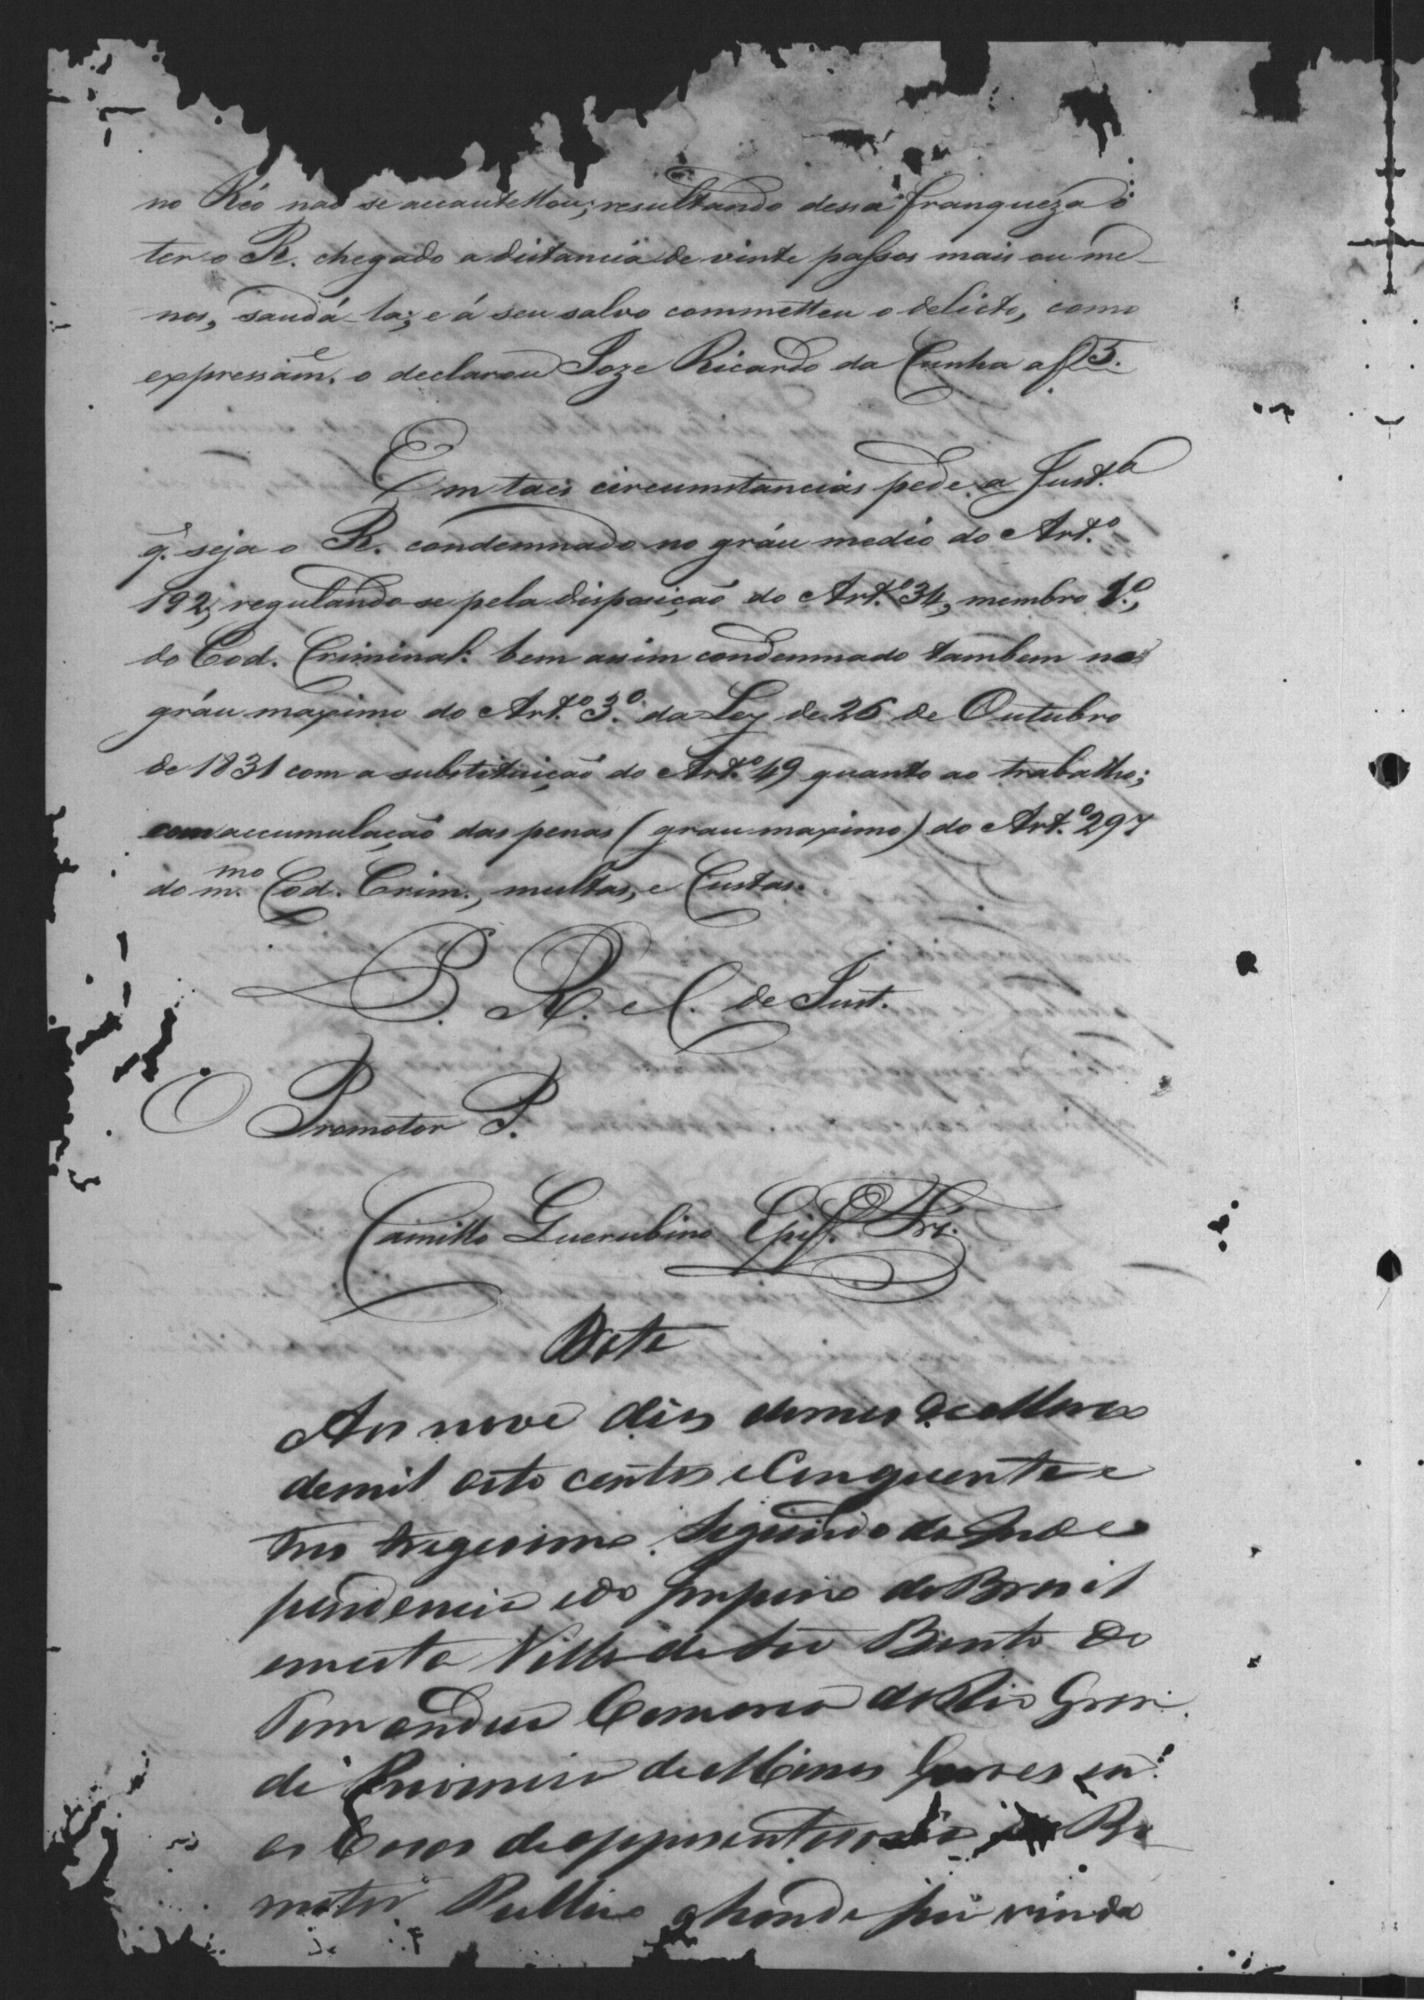 no Réo naõ se acautellou; resultando dessa franqueza o
ter o R. chegado a distancia de vinte passos mais ou me-
nos, saudá-la; e á seu salvo commetteu o delicto, como
expressam.e o declarou Joze Ricardo da Cunha a f 5.
Em taes circumstancias pede a Just.a
q.' seja o R. condemnado no gráu medio do Art.o
192, regulando-se pela disposiçaõ do Art.o 34, membro 1.o,
do Cod. Criminal: bem assim condemnado tambem no
gráu maximo do Art.o 3.o da Ley de 26 de Outubro
de 1831 com a substituiçaõ do Art.o 49 quanto ao trabalho;
com accumulaçaõ das penas (grau maximo) do Art.o 297
do m.mo Cod. Crim., multas, e Custas.
P. R. e C. de Just.
O Promotor P.
Camillo Querubino Epif.
Data
Aos nove dias do mes de Março
de mil oito centos e Cinquenta e
tres trigesimo segundo da Inde
pendencia e do Imperio do Brasil
em esta Villa de São Bento do
Tamanduá Comarca do Rio Gran
de Provincia de Minas Geraes em
as Casas de apposentos do Pro
motor Publico ahonde fui vindo